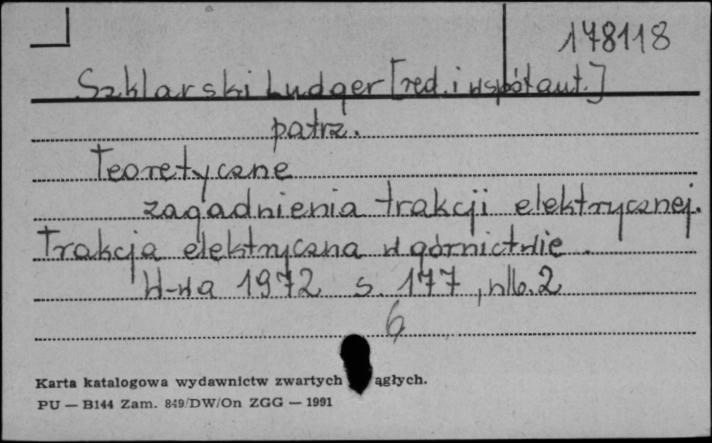 178118
Szklarski Ludger [red. i współaut.]
patrz.
Teoretyczne
zagadnienia trakcji elektrycznej.
Trakcja elektryczna w górnictwie.
W-wa 1972 s. 177, nlb. 2
6
Karta katalogowa wydawnictw zwartych ągłych.
PU — B144 Zam. 849/DW/On ZGG — 1991